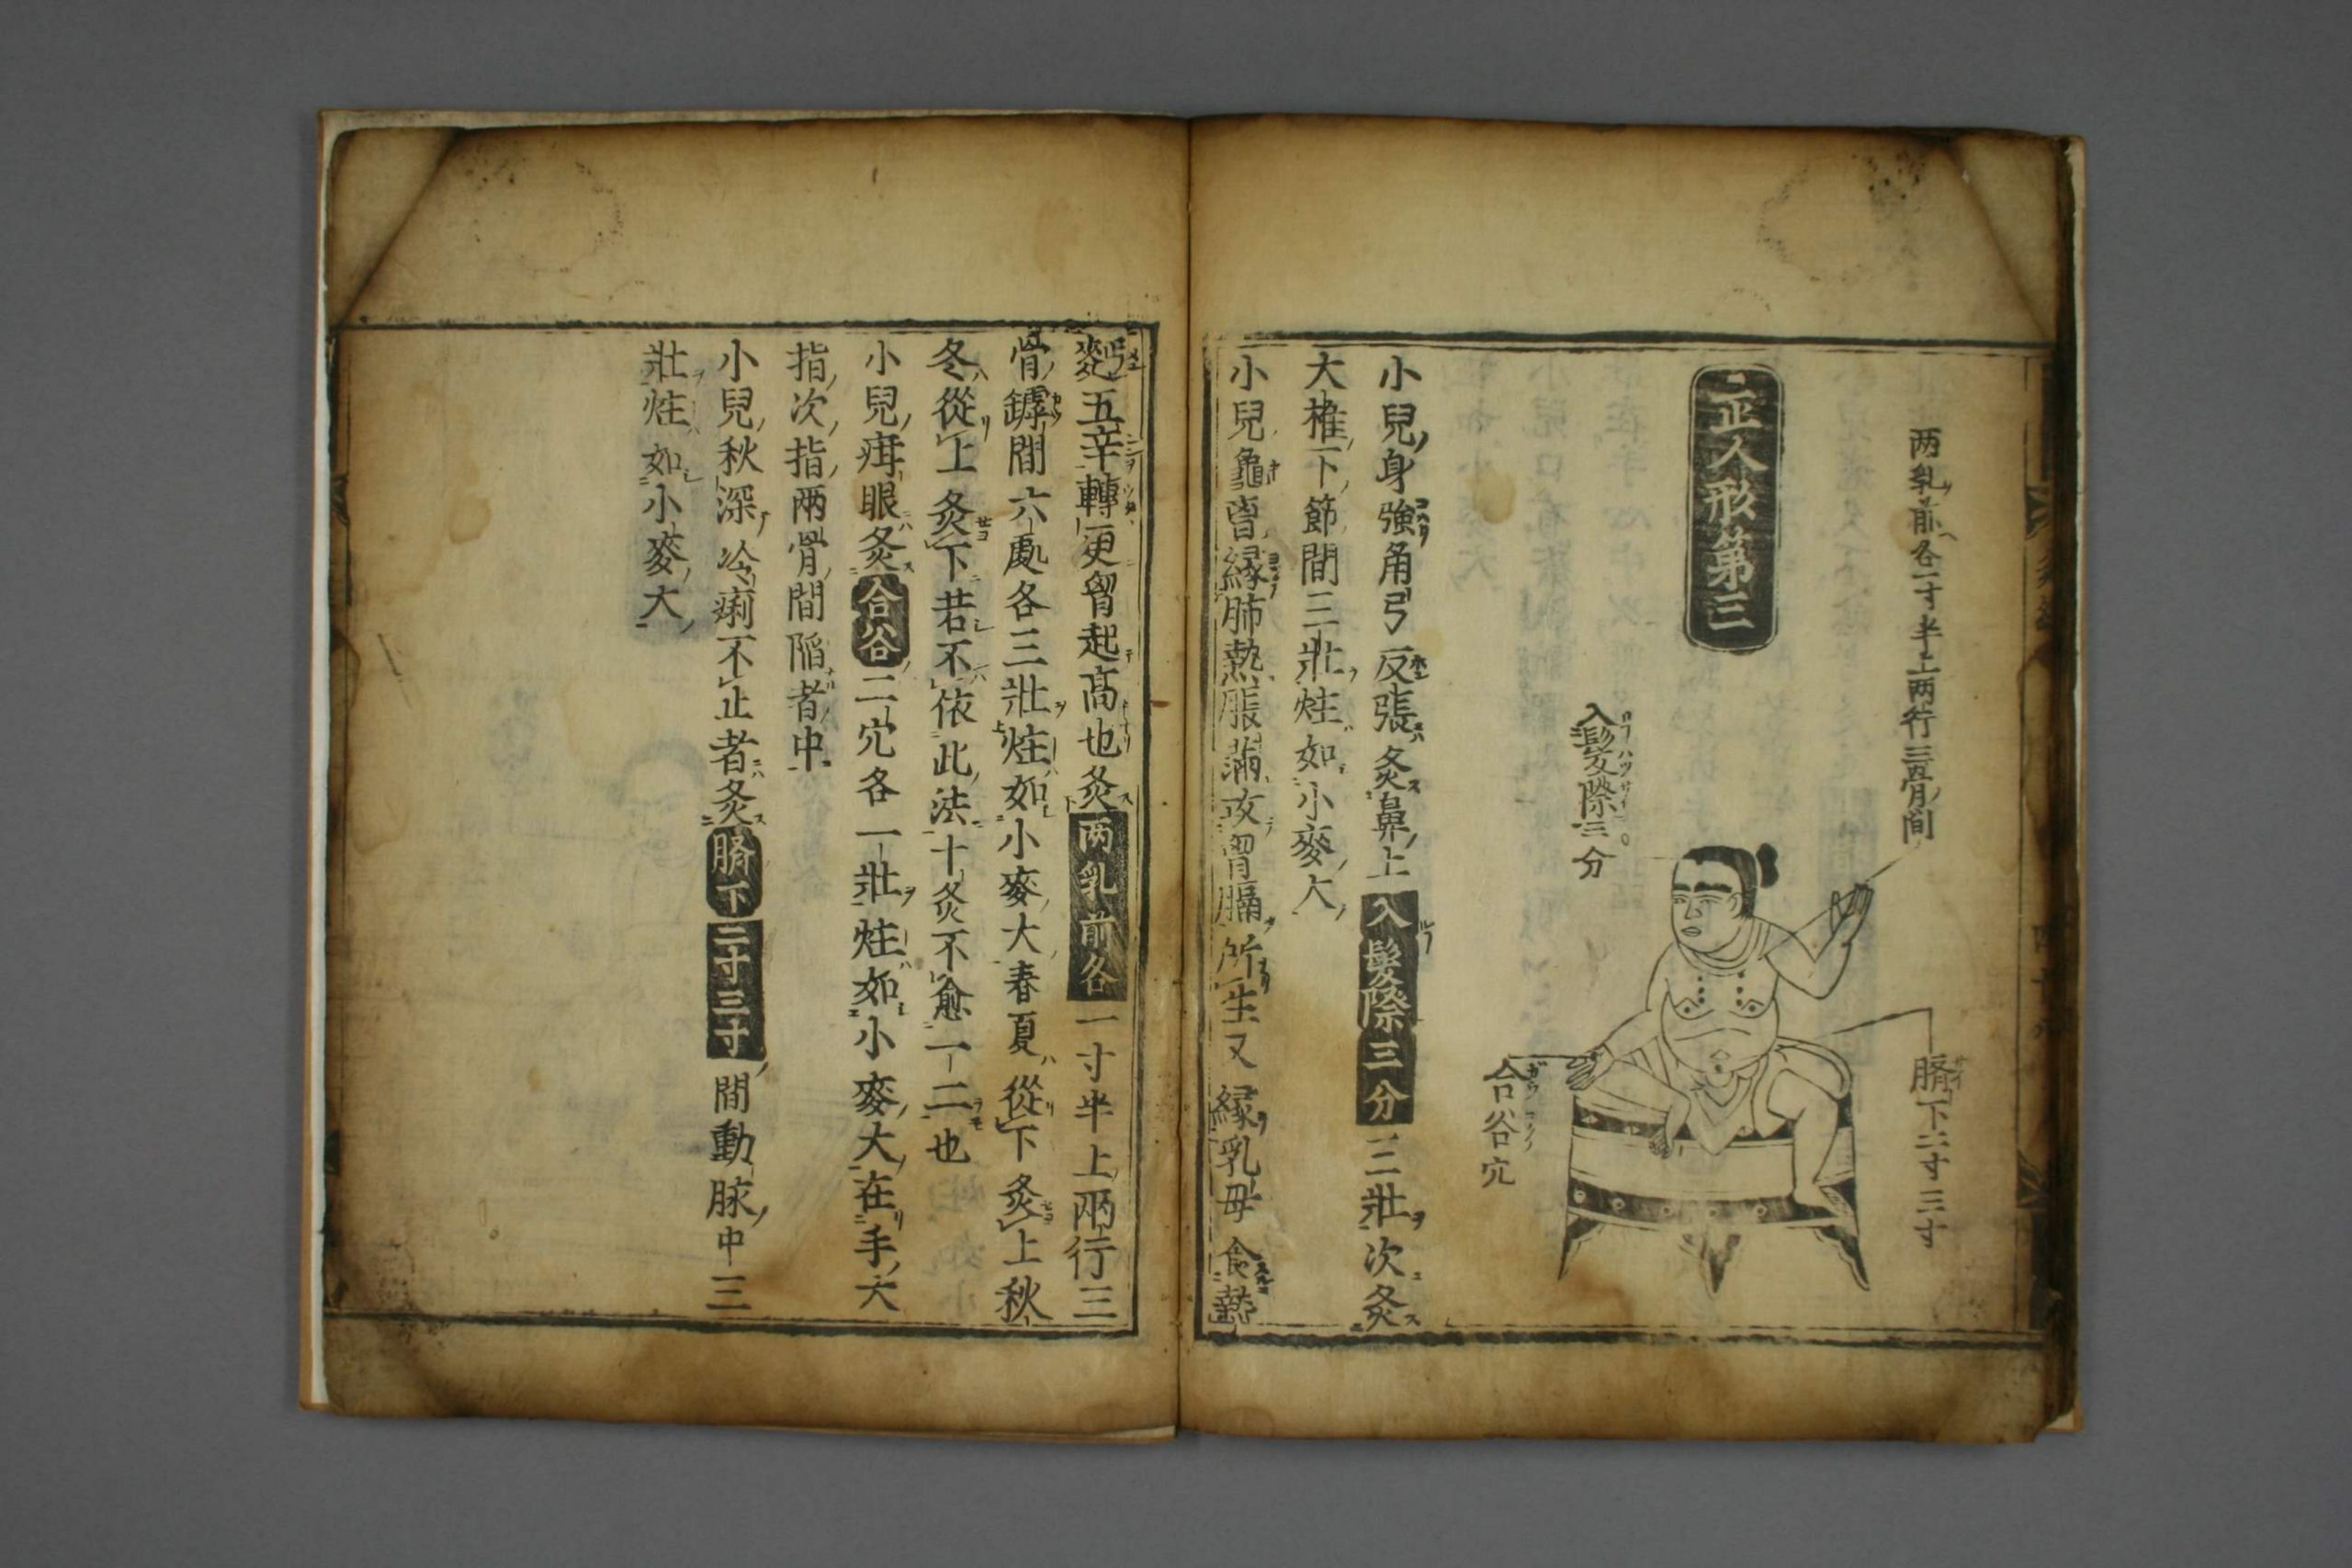 两乳前各一寸半上两行三骨間
臍下二寸三寸
正人形第三
入髮際三分
合谷穴
小兒身強角弓反張灸鼻上入髮際三分三壯次灸
大椎下節間三壯炷如小麥大
小兒龜胷緣肺熱脹滿攻胷膈所生又緣乳母食熱
麪五辛轉更胷起高也灸两乳前各一寸半上兩行三
骨罅間六處各三壯炷如小麥大春夏從下灸上秋
冬從上灸下若不依此法十灸不愈一二也
小兒疳眼灸合谷二穴各一壯炷如小麥大在手大
指次指兩骨間陷者中
小兒秋深冷痢不止者灸臍下二寸三寸間動脉中三
壯炷如小麥大